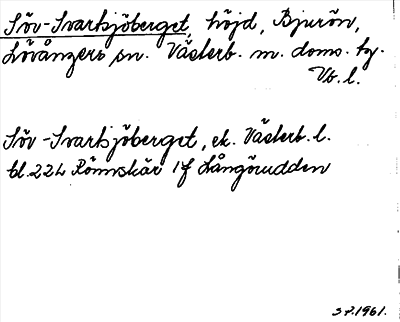 Söv-Svartsjöberget, höjd, Bjurön,
Lövångers sn. Västerb. m. doms. hg.
Vb. l.
Söv-Svartsjöberget, ek. Västerb. l.
bl. 22L Rönnskär 1f Långörudden
S P. 1961.